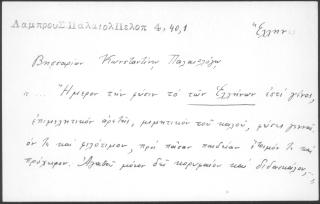 Λαμπρου Σ. Παλαιολ Πελοπ 4, 40, 1
Ἕλλην
Βησσαρίων Κωνσταντίνῳ Παλαιολόγῳ
"... Ἥμερον τὴν φύσιν τὸ τῶν Ἑλλήνων ἐστὶ γένος,
ἐπιμελητικὸν ἀρετῆς, μιμητικὸν τοῦ καλοῦ, φύσει γενναῖ
όν τε καὶ φιλότιμον, πρὸς πᾶσαν παιδείαν ἕτοιμόν τε καὶ
πρόχειρον. Ἀγαθοῦ μόνον δεῖ κορυφαίου καὶ διδασκάλου,...